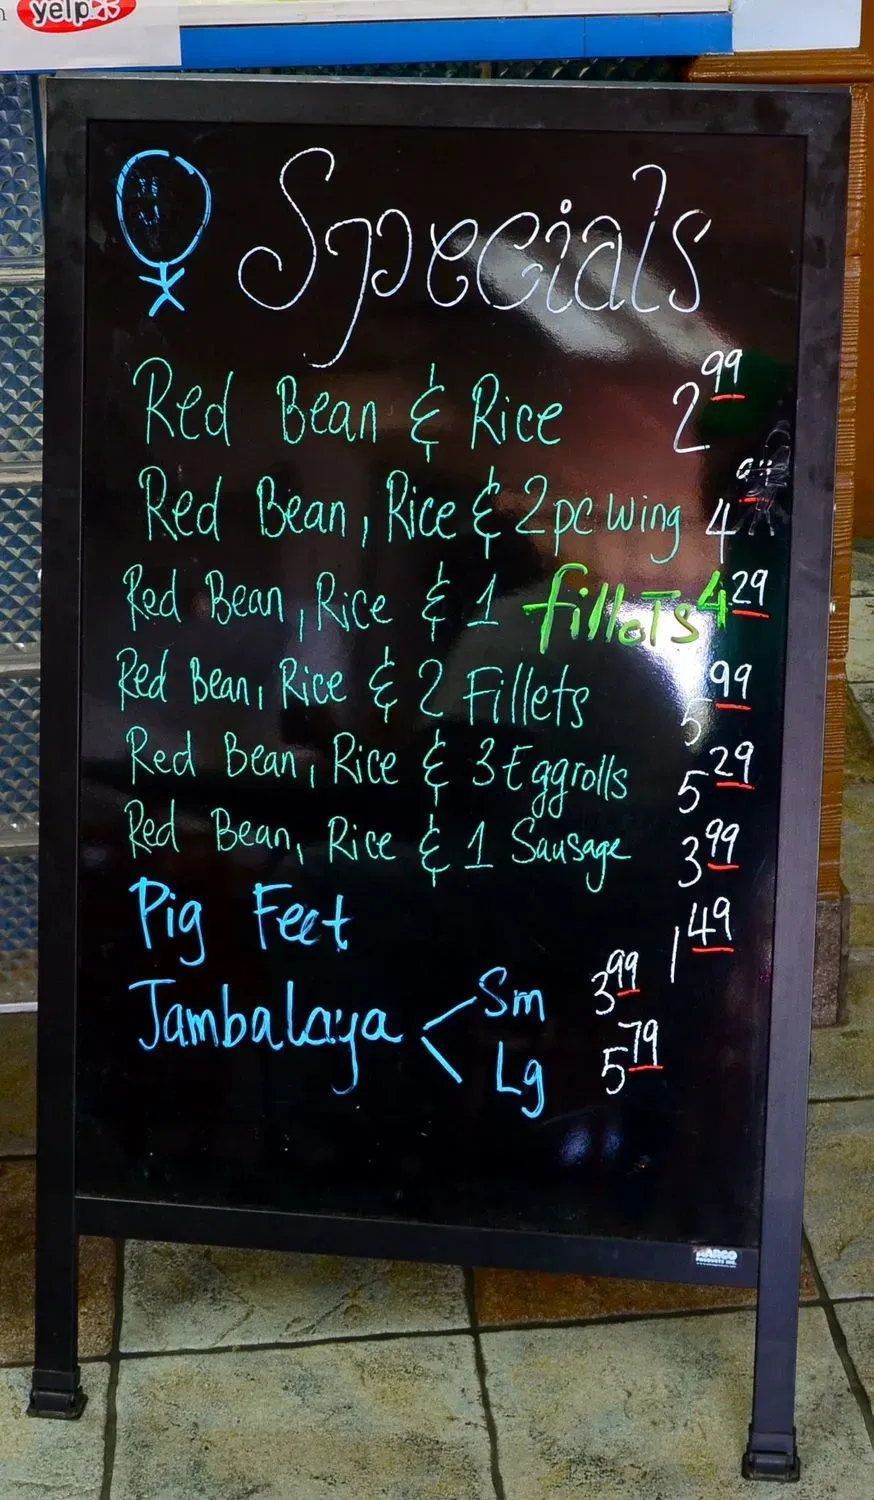 yelp
Specials
Red Bean & Rice 2 99
Red Bean, Rice & 2pc wing 4
Red Bean, Rice & 1 fillets 4 29
Red Bean, Rice & 2 Fillets 5 99
Red Bean, Rice & 3 Eggrolls 5 29
Red Bean, Rice & 1 Sausage 3 99
Pig Feet 1 49
Jambalaya < Sm 3 99
Lg 5 79